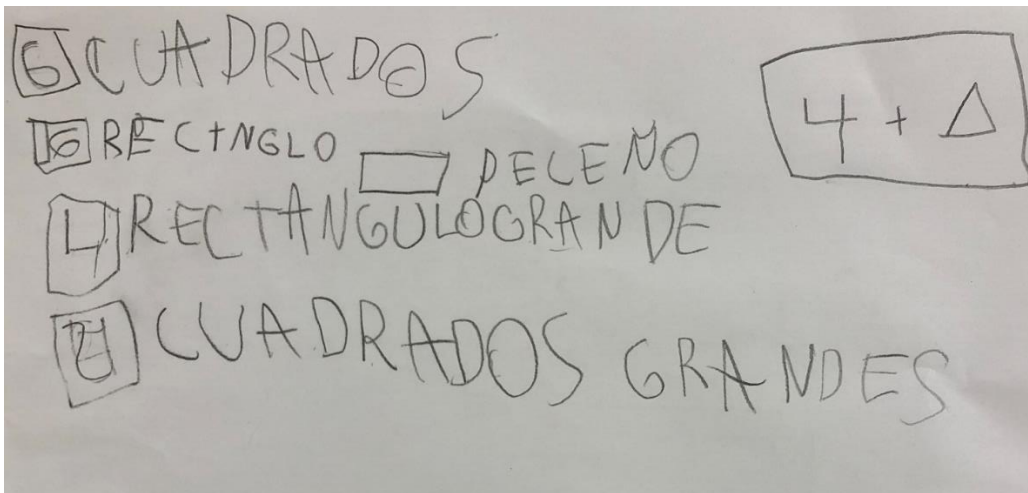 6 CUADRADOS
4 + △
16 RECTNGLO PECEÑO
4 RECTANGULOGRANDE
CUADRADOS GRANDES